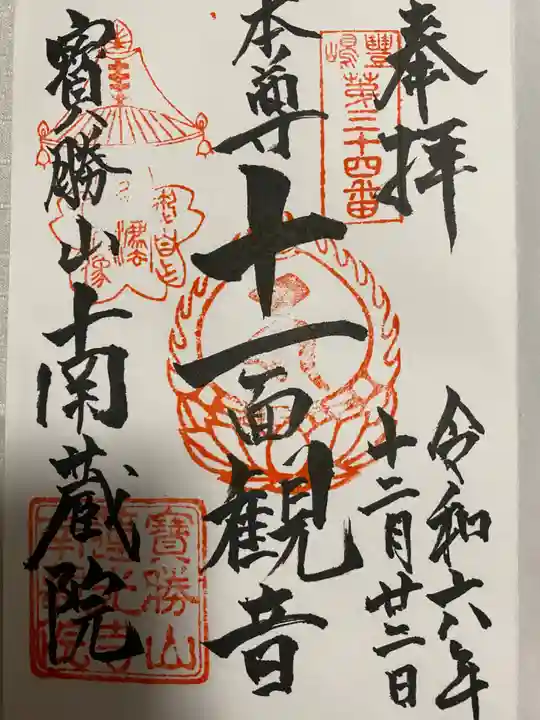 奉拝
豐嶋
第三十四番
令和六年
十二月廿二日
本尊
十一面観音
寳勝山南蔵院
寶勝山